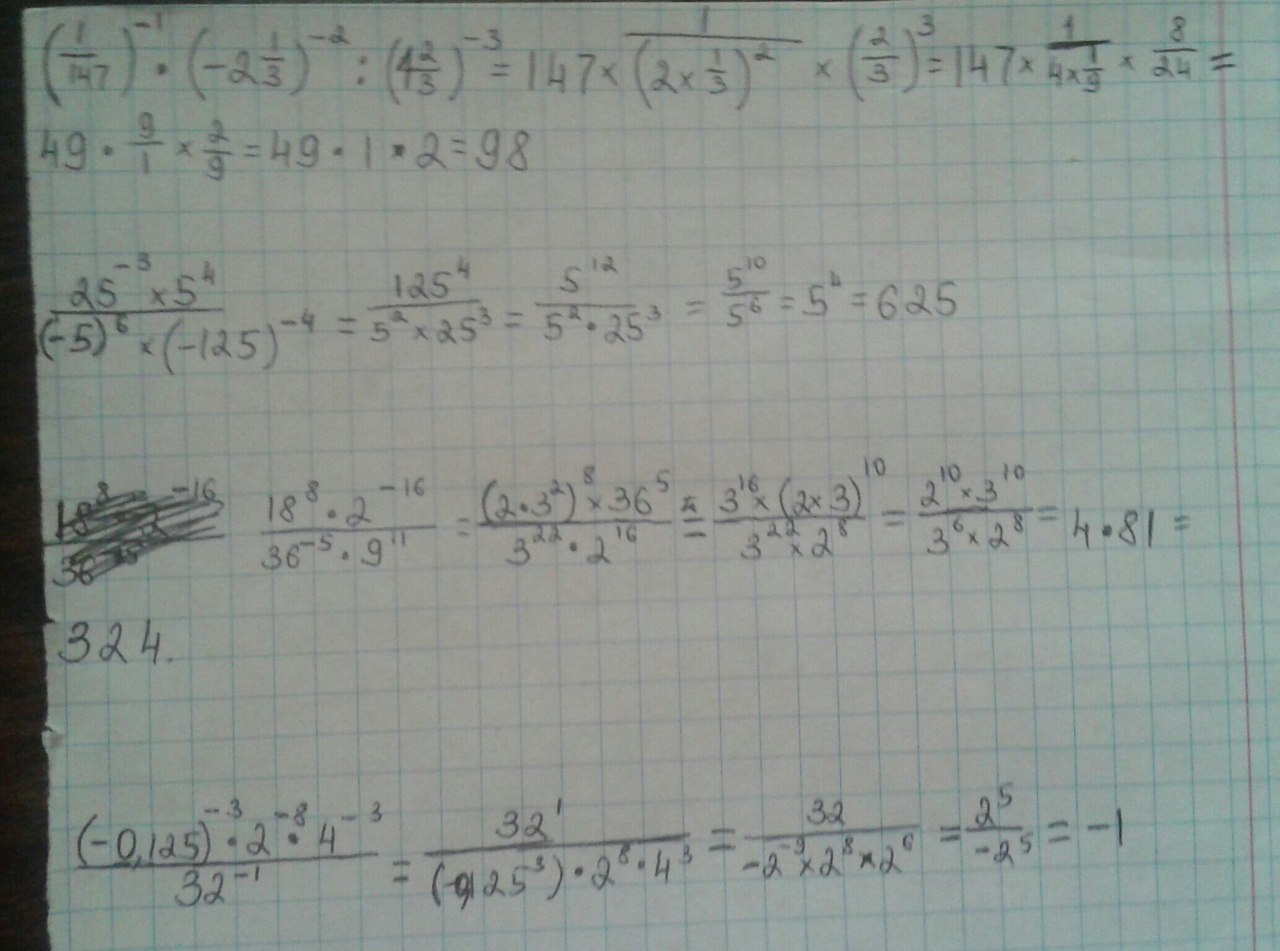 (1/147)^-1 · (-2 1/3)^-2 : (1 2/3)^-3 = 147 × 1/(2 × 1/3)^2 × (2/3)^3 = 147 × 1/(4 × 1/9) × 8/24 =
49 · 9/1 × 2/9 = 49 · 1 · 2 = 98
(25^-3 × 5^4)/((-5)^6 × (-125)^-4) = 125^4/(5^2 × 25^3) = 5^12/(5^2 · 25^3) = 5^10/5^6 = 5^4 = 625
(18^8 · 2^-16)/(36^-5 · 9^11) = ((2 · 3^2)^8 × 36^5)/(3^22 · 2^16) = (3^16 × (2 × 3)^10)/(3^22 × 2^8) = (2^10 × 3^10)/(3^6 × 2^8) = 4 · 81 =
324.
((-0,125)^-3 · 2^-8 · 4^-3)/32^-1 = 32^1/((-0,125^3) · 2^8 · 4^3) = 32/(-2^-9 × 2^8 × 2^6) = 2^5/-2^5 = -1